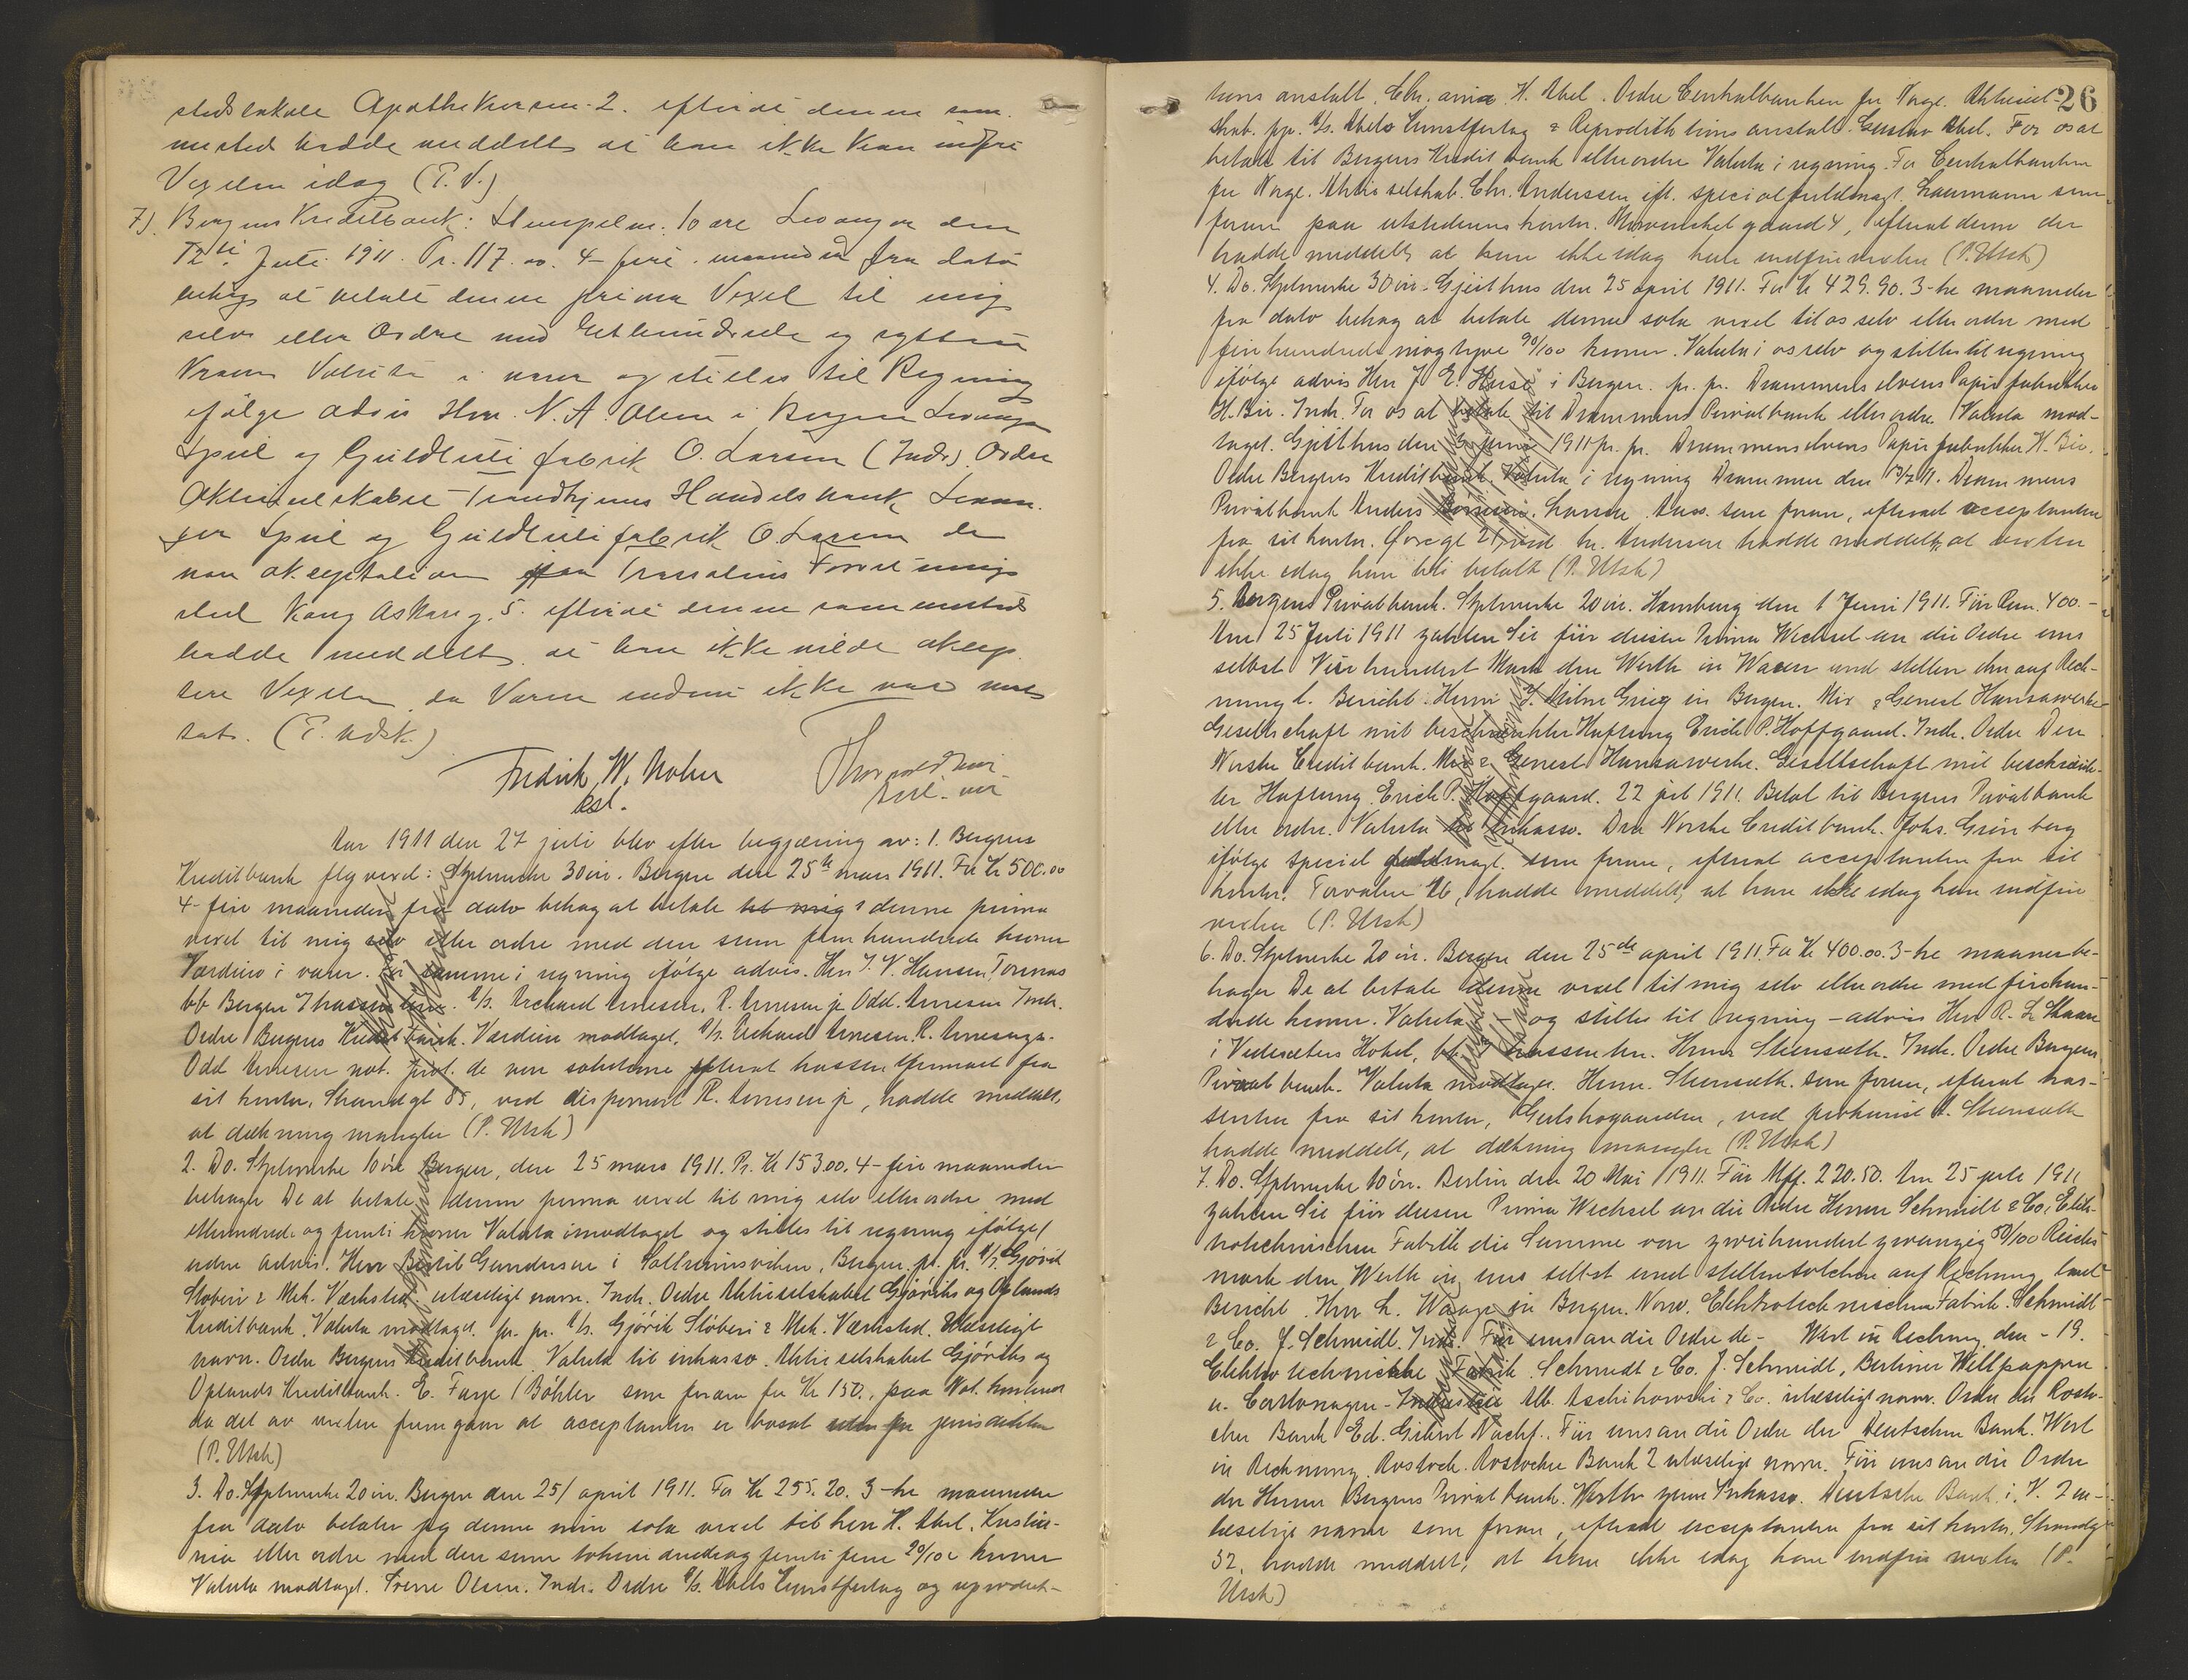 stedslokale Apothekersm. 2. efterat denne sam-
mested hadde meddelt at han ikke kan indfri
Vexelen idag (P. V.)
7). Bergens Kreditbank: Stempelm. 10 øre Levanger den
12te Juli 1911. Kr. 117.00. 4 - fire maaneder fra dato
behag at betale denne prima Vexel til mig
selv eller Ordre med Ethundrede og sytten
Kroner Valuta i varer og stilles til Regning
ifølge advis Herr N. A. Olsen i Bergen Levanger
Speil og Guldlistefabrik O. Larsen (Indr.) Ordre
Aktieselskabet Trondhjems Handelsbank Levan-
ger Speil og Guldlistefabrik O. Larsen de
non akceptation fra Trassatens Forretnings
sted Kong Oskars g. 5. efterat denne sammesteds
hadde meddelt at han ikke vilde akcep
tere Vexelen da Varen endnu ikke var mot
tat. (P. Udsk.)
Fredrik W. Nolier
kst.
Aar 1911 den 27 juli blev efter begjæring av: 1. Bergens
Kreditbank flg vexel: Stplmerke 30 ør. Bergen den 25te mars 1911. For Kr 500.00
4 - fire maaneder fra dato behag at betale til mig denne prima
vexel til mig selv eller ordre med den sum fem hundrede kroner
Værdien i varer. Før samme i regning ifølge advis. Herr J. V. Hansen,
bb Bergen Trassenten. A/S. Richard Arnesen, R. Arnesen jr Odd. Arnesen Indr.
Ordre Bergens Kreditbank. Værdien modtaget. A/S. Richard Arnesen. R. Arnesen jr.
Odd Arnesen not. prot. de non solutione efterat trassenten fra
sit kontor, Strandgt 85, ved disponent R. Arnesen jr, hadde meddelt,
at dækning mangler (P. Utsk)
2. Do. Stplmerke 10 øre Bergen, den 25 mars 1911. Pr. Kr 153.00. 4 - fire maaneder
behager De at betale denne prima vexel til mig selv eller ordre med
ethundrede og femti kroner Valuta i modtaget og stilles til regning ifølge /
uden advis. Herr Bertil Gundersen i Solheimsviken, Bergen. pr. pr. A/S. Gjøvik
Støberi & Mek. Værksted. ulæseligt navn. Indr. Ordre Aktieselskabet Gjøviks og Oplands
Kreditbank. Valuta modtaget. pr. pr. A/S. Gjøvik Støberi & Mek. Værksted. Ulæseligt
navn. Ordre Bergens Kreditbank. Valuta til inkasso. Aktieselskabet Gjøviks og
Oplands Kreditbank. E. Farje / Bøhler som foran for Kr 150., paa Not. kontoret
da det av vexlen fremgaar at acceptanten er bosat utenfor jurisdiktionen
(P. Utsk)
3. Do. Stplmerke 20 ør. Bergen den 25/ april 1911. For Kr 255.20. 3 - tre maaneder
fra dato betaler jeg denne min sola vexel til herr H. Abel, Kristia-
nia eller ordre med den sum tohundredeog femti fem 20/100 kroner
Valuta modtaget. Sverre Olsen. Indr. Ordre A/S. Abels Kunstforlag og reproduk-
26
tions anstalt. Chr.ania H. Abel. Ordre Centralbanken for Norge. Aktiesel-
skab. pp. A/S. Abels Kunstforlag & Reproduktions anstalt. Gustav Abel. For os at
betale til Bergens Kredit bank eller ordre Valuta i regning. For Centralbanken
for Norge. Aktieselskab. Chr. Anderssen ift. specialfuldmagt. Laumann som
foran paa utstederens kontor. Murmesterl gaard 4, efterat denne der
hadde meddelt, at han ikke idag kule indfri vexlen (P. Utsk)
4. Do. Stplmerke 30 ør. Gjeithus den 25 april 1911. For Kr 429.90. 3 - tre maaneder
fra dato behag at betale denne sola vexel til os selv eller ordre med
firehundrede niogtyve 90/100 kroner. Valuta i os selv og stilles til regning
ifølge advis Herr J. E. Huse i Bergen. pr. pr. Drammenselvens Papirfabrikker
H. Bie. Indr. For os at betale til Drammens Privatbank eller ordre. Valuta mod-
taget. Gjeithus den 3 juni 1911 pr. pr. Drammenselvens Papirfabrikker H. Bie.
Ordre Bergens Kreditbank. Valuta i regning Drammen den 13/7 11. Drammens
Privatbank Anders Larsen. Aass. som foran, efterat acceptanten
fra sit kontor. Øvregt 21, ved hr. Andersen hadde meddelt, at vexlen
ikke idag kan bli betalt (P. Utsk)
5. Bergens Privatbank. Stplmerke 20 ør. Hamburg den 1 Juni 1911. Für Rm. 400.-
Am 25 Juli 1911 zahlen Sie für diesen Prima Wechsel an die Ordre uns
selbst Vier hundert Mark den Werth in Waren und stellen ihn auf Rech-
nung l. Bericht. Herrn J. Milne Grieg in Bergen. Mix & Genest Hansawerke
Gesellschaft mit beschränkter Haftung Erich P. Hoffgaard. Indr. Ordre Den
Norske Creditbank. Mix & Genest Hansawerke. Gesellschaft mit beschränk-
ter Haftung. Erich P. Hoffgaard. 22 juli 1911. Betal til Bergens Privatbank
eller ordre. Valuta til inkasso. Den Norske Creditbank. Johs. Grønberg
ifølge speciel fuldmagt. som foran, efterat acceptanten fra sit
kontor. Torvalm. 26, hadde meddelt, at han ikke idag kan indfri
vexlen (P. Utsk)
6. Do. Stplmerke 20 ør. Bergen den 25de april 1911. For Kr 400.00. 3 - tre maaner be-
hager De at betale denne vexel til mig selv eller ordre med firehun-
drede kroner. Valuta - og stilles til regning - advis Herr R. L. Skaar
i Videsæters Hotel, bb. trassenten. Herm Steensæth. Indr. Ordre Bergens
Privat bank. Valuta modtaget. Herm. Steensæth. som foran, efterat tras-
senten fra sit kontor, Geelshogaarden, ved prokurist A. Steensæth
hadde meddelt, at dækning mangler (P. Utsk)
7. Do. Stplmerke 10 ør. Berlin den 20 Mai 1911. Für Mk. 220.50. Am 25 juli 1911
zahlen Sie für diesen Prima Wechsel an die Ordre Herren Schmidt & Co, Elek-
trotechnischen Fabrik die Summe von zweihundert zwanzig 50/100 Reichs
mark den Werth in uns selbst und stellen solchen auf Rechnung laut
Bericht. Herr L. Waage in Bergen. Norw. Elektrotechnischen Fabrik. Schmidt
& Co. J. Schmidt. Indr. Für uns an die Ordre de - Wert in Rechnung den - 19.
Elektrotechnische Fabrik. Schmidt & Co. J. Schmidt, Berliner Wellpappen
u. Cartonagen-Industrie Alb. Aschikowski & Co. ulæseligt navn. Ordre der Rosto-
cker Bank Ed. Gilert Nachf. Für uns an die Ordre der Deutschen Bank. Wert
in Rechnung. Rostock. Rostocker Bank 2 ulæselige navn. Für uns an die Ordre
der Herren Bergens Privat Bank. Werth zum Inkasso. Deutsche Bank i. V. 2 u-
læselige navne som foran, efterat acceptanten fra sit kontor, Strandgt
52, hadde meddelt, at han ikke idag kan indfri vexlen (P.
Utsk)